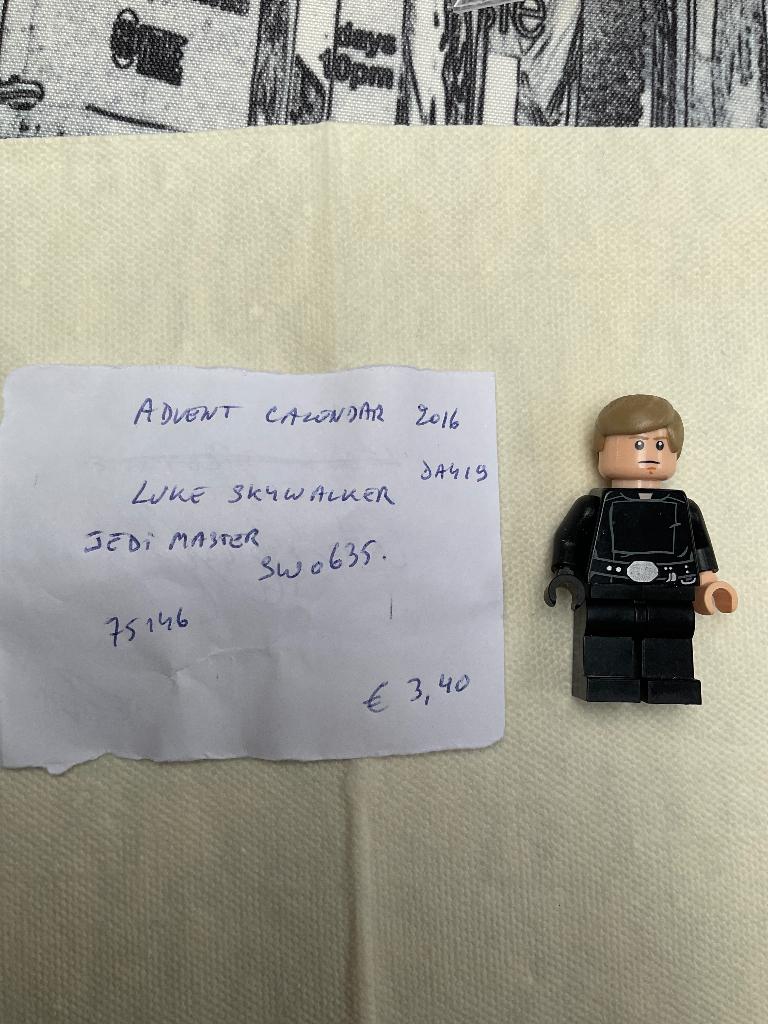 days
10pm
ADVENT CALENDAR 2016
DAY19
LUKE SKYWALKER
JEDi MASTER
SW0635.
75146
€ 3,40